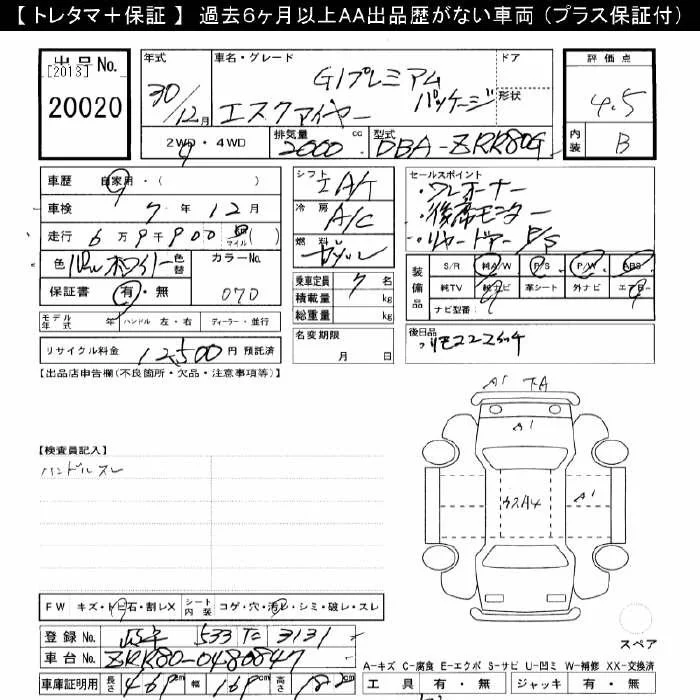 【 トレタマ＋保証 】 過去6ヶ月以上AA出品歴がない車両（プラス保証付）
出品No.
[2013]
20020
年式
30/12月
車名・グレード
エスクァイヤー
GIプレミアム
パッケージ
ドア
形状
2WD・4WD
排気量
2000cc
型式
DBA-ZRR80G
評価点
4.5
内装
B
車歴 自家用・( )
車検 7年12月
走行 6万9千900 マイル( )
色
ホワイト
色替
カラーNo.
070
保証書 有・無
モデル年式 年 ハンドル 左・右 ディーラー・並行
リサイクル料金 12,500円 預託済
シフト
IAT
冷房
A/C
燃料
乗車定員 7名
積載量 kg
総重量 kg
名変期限
月 日
セールスポイント
・ワンオーナー
・後席モニター
装備品
S/R 純A/W P/S P/W ABS
純TV 純ナビ 革シート 外ナビ エアB
ナビ型番
後日品
【出品店申告欄(不良箇所・欠品・注意事項等)】
【検査員記入】
ハンドルスレ
A1
A1
ウスA4
A1
FW キズ・トビ石・割レX シート内装 コゲ・穴・汚レ・シミ・破レ・スレ
登録No. 533 3131
車台No. ZRR80-0480847
車庫証明用 長さ 469 幅 169 高さ 182
スペア
A-キズ C-腐食 E-エクボ S-サビ U-凹ミ W-補修 XX-交換済
工具 有・無 ジャッキ 有・無